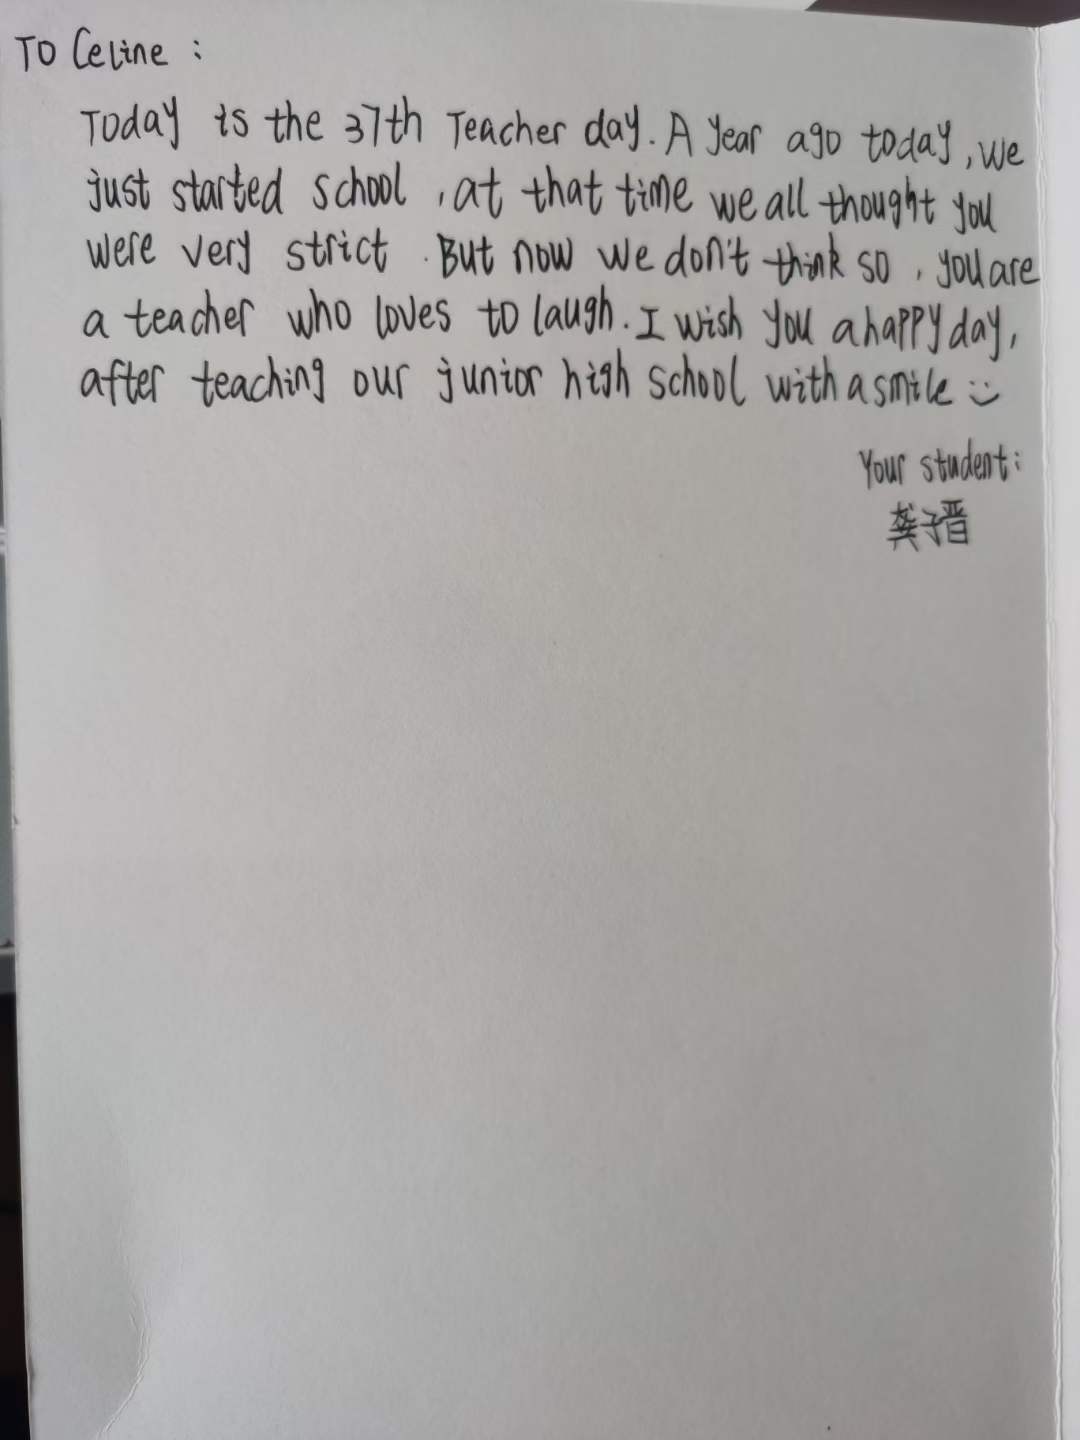 TO Celine :
Today is the 37th Teacher day. A year ago today, we
just started school , at that time we all thought you
were very strict . But now we don't think so , you are
a teacher who loves to laugh. I wish you a happy day,
after teaching our junior high school with a smile :)
Your student:
龚子晋